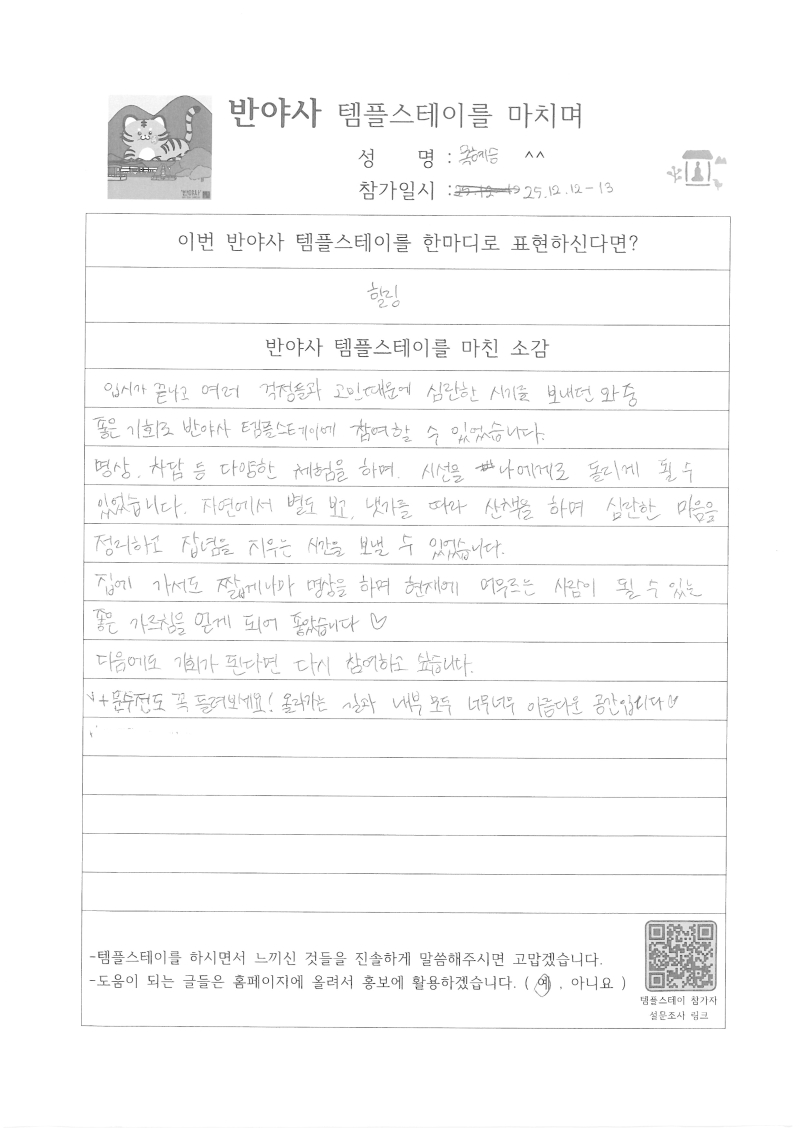 반야사 템플스테이를 마치며
성 명 : ^^
참가일시 : 25.12.12-13
이번 반야사 템플스테이를 한마디로 표현하신다면?
힐링
반야사 템플스테이를 마친 소감
입시가 끝나고 여러 걱정들과 고민때문에 심란한 시기를 보내던 와중
좋은 기회로 반야사 템플스테이에 참여할 수 있었습니다.
명상, 차담 등 다양한 체험을 하며, 시선을 나에게로 돌리게 될 수
있었습니다. 자연에서 별도 보고, 냇가를 따라 산책을 하며 심란한 마음을
정리하고 잡념을 지우는 시간을 보낼 수 있었습니다.
집에 가서도 짧게나마 명상을 하며 현재에 머무르는 사람이 될 수 있는
좋은 가르침을 얻게 되어 좋았습니다 ♡
다음에도 기회가 된다면 다시 참여하고 싶습니다.
+문수전도 꼭 들려보세요! 올라가는 길과 내부 모두 너무너무 아름다운 공간입니다♡
-템플스테이를 하시면서 느끼신 것들을 진솔하게 말씀해주시면 고맙겠습니다.
-도움이 되는 글들은 홈페이지에 올려서 홍보에 활용하겠습니다. ( 예 , 아니요 )
템플스테이 참가자
설문조사 링크